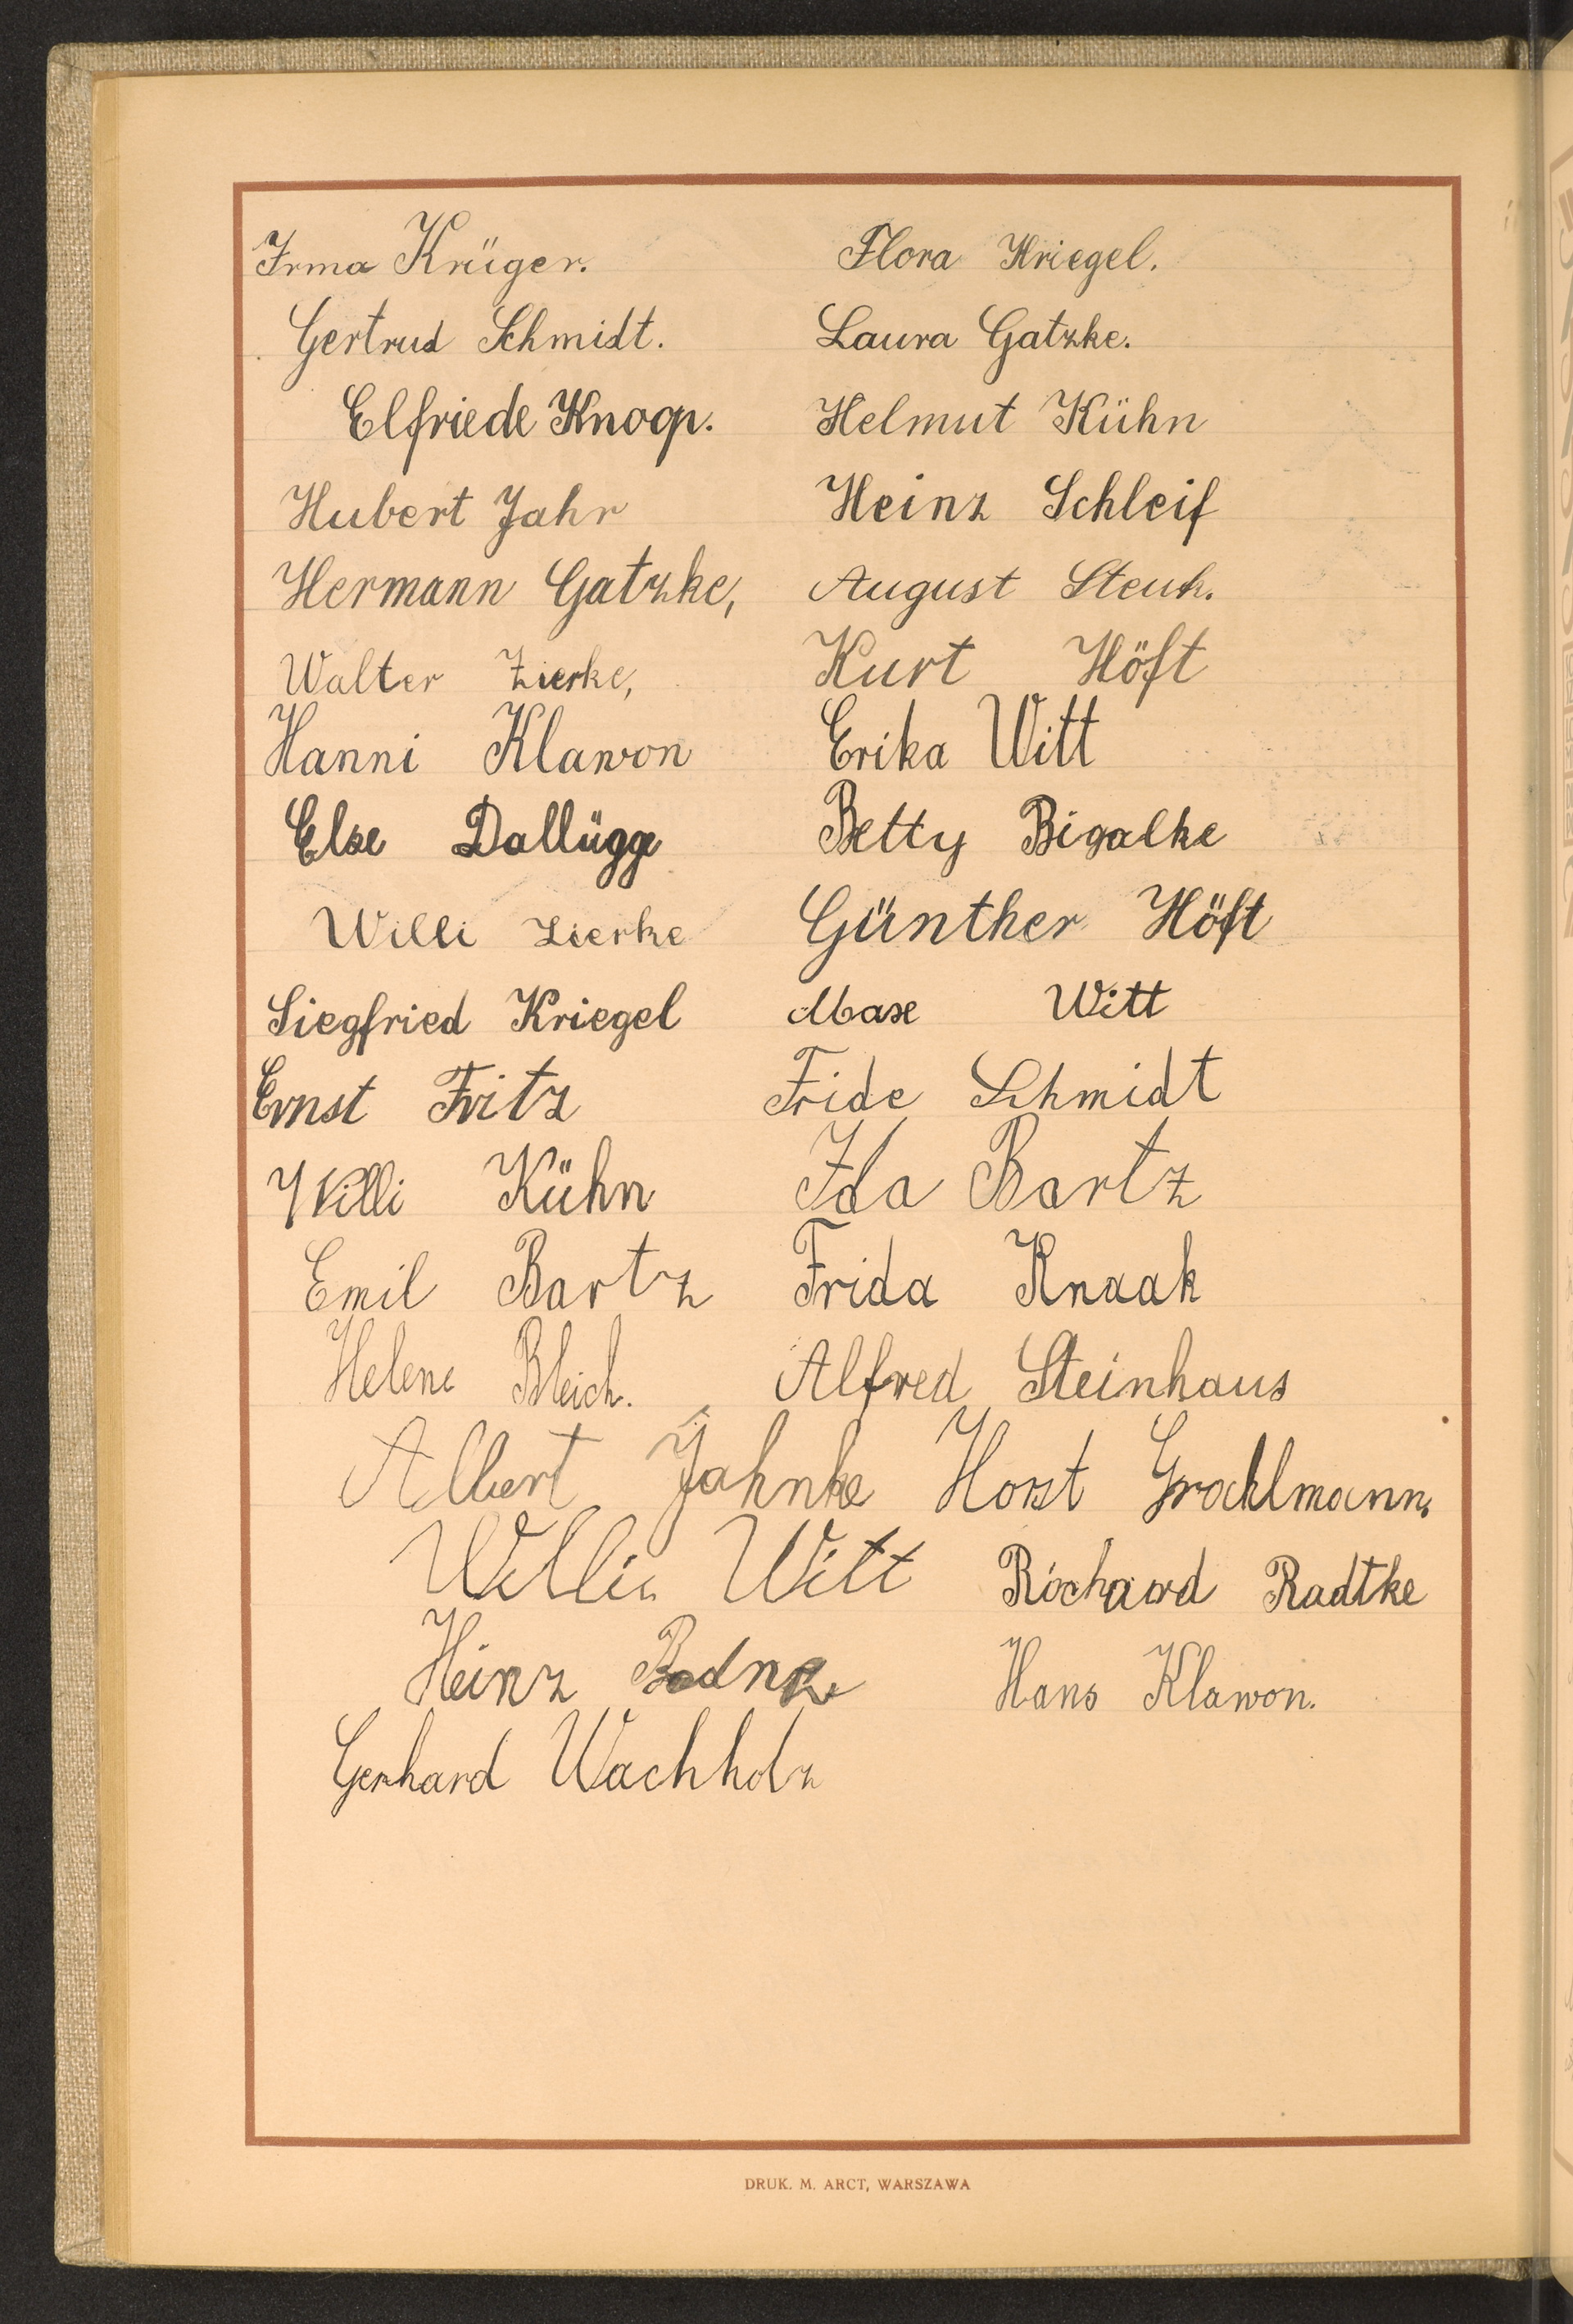 Irma Krüger. Flora Kriegel.
Gertrud Schmidt. Laura Gatzke.
Elfriede Knoop. Helmut Kühn
Hubert Jahr Heinz Schleif
Hermann Gatzke, August Steuk.
Walter Zierke, Kurt Höft
Hanni Klawon Erika Witt
Else Dallügge Betty Bigalke
Willi Zierke Günther Höft
Siegfried Kriegel Witt
Ernst Fritz Fride Schmidt
Willi Kühn Ida Bartz
Emil Bartz Frida Knaak
Helene Bleich. Alfred Steinhaus
Albert Jahnke Horst
Willi Witt Richard Radtke
Heinz Hans Klawon.
Gerhard Wachholz
DRUK. M. ARCT, WARSZAWA